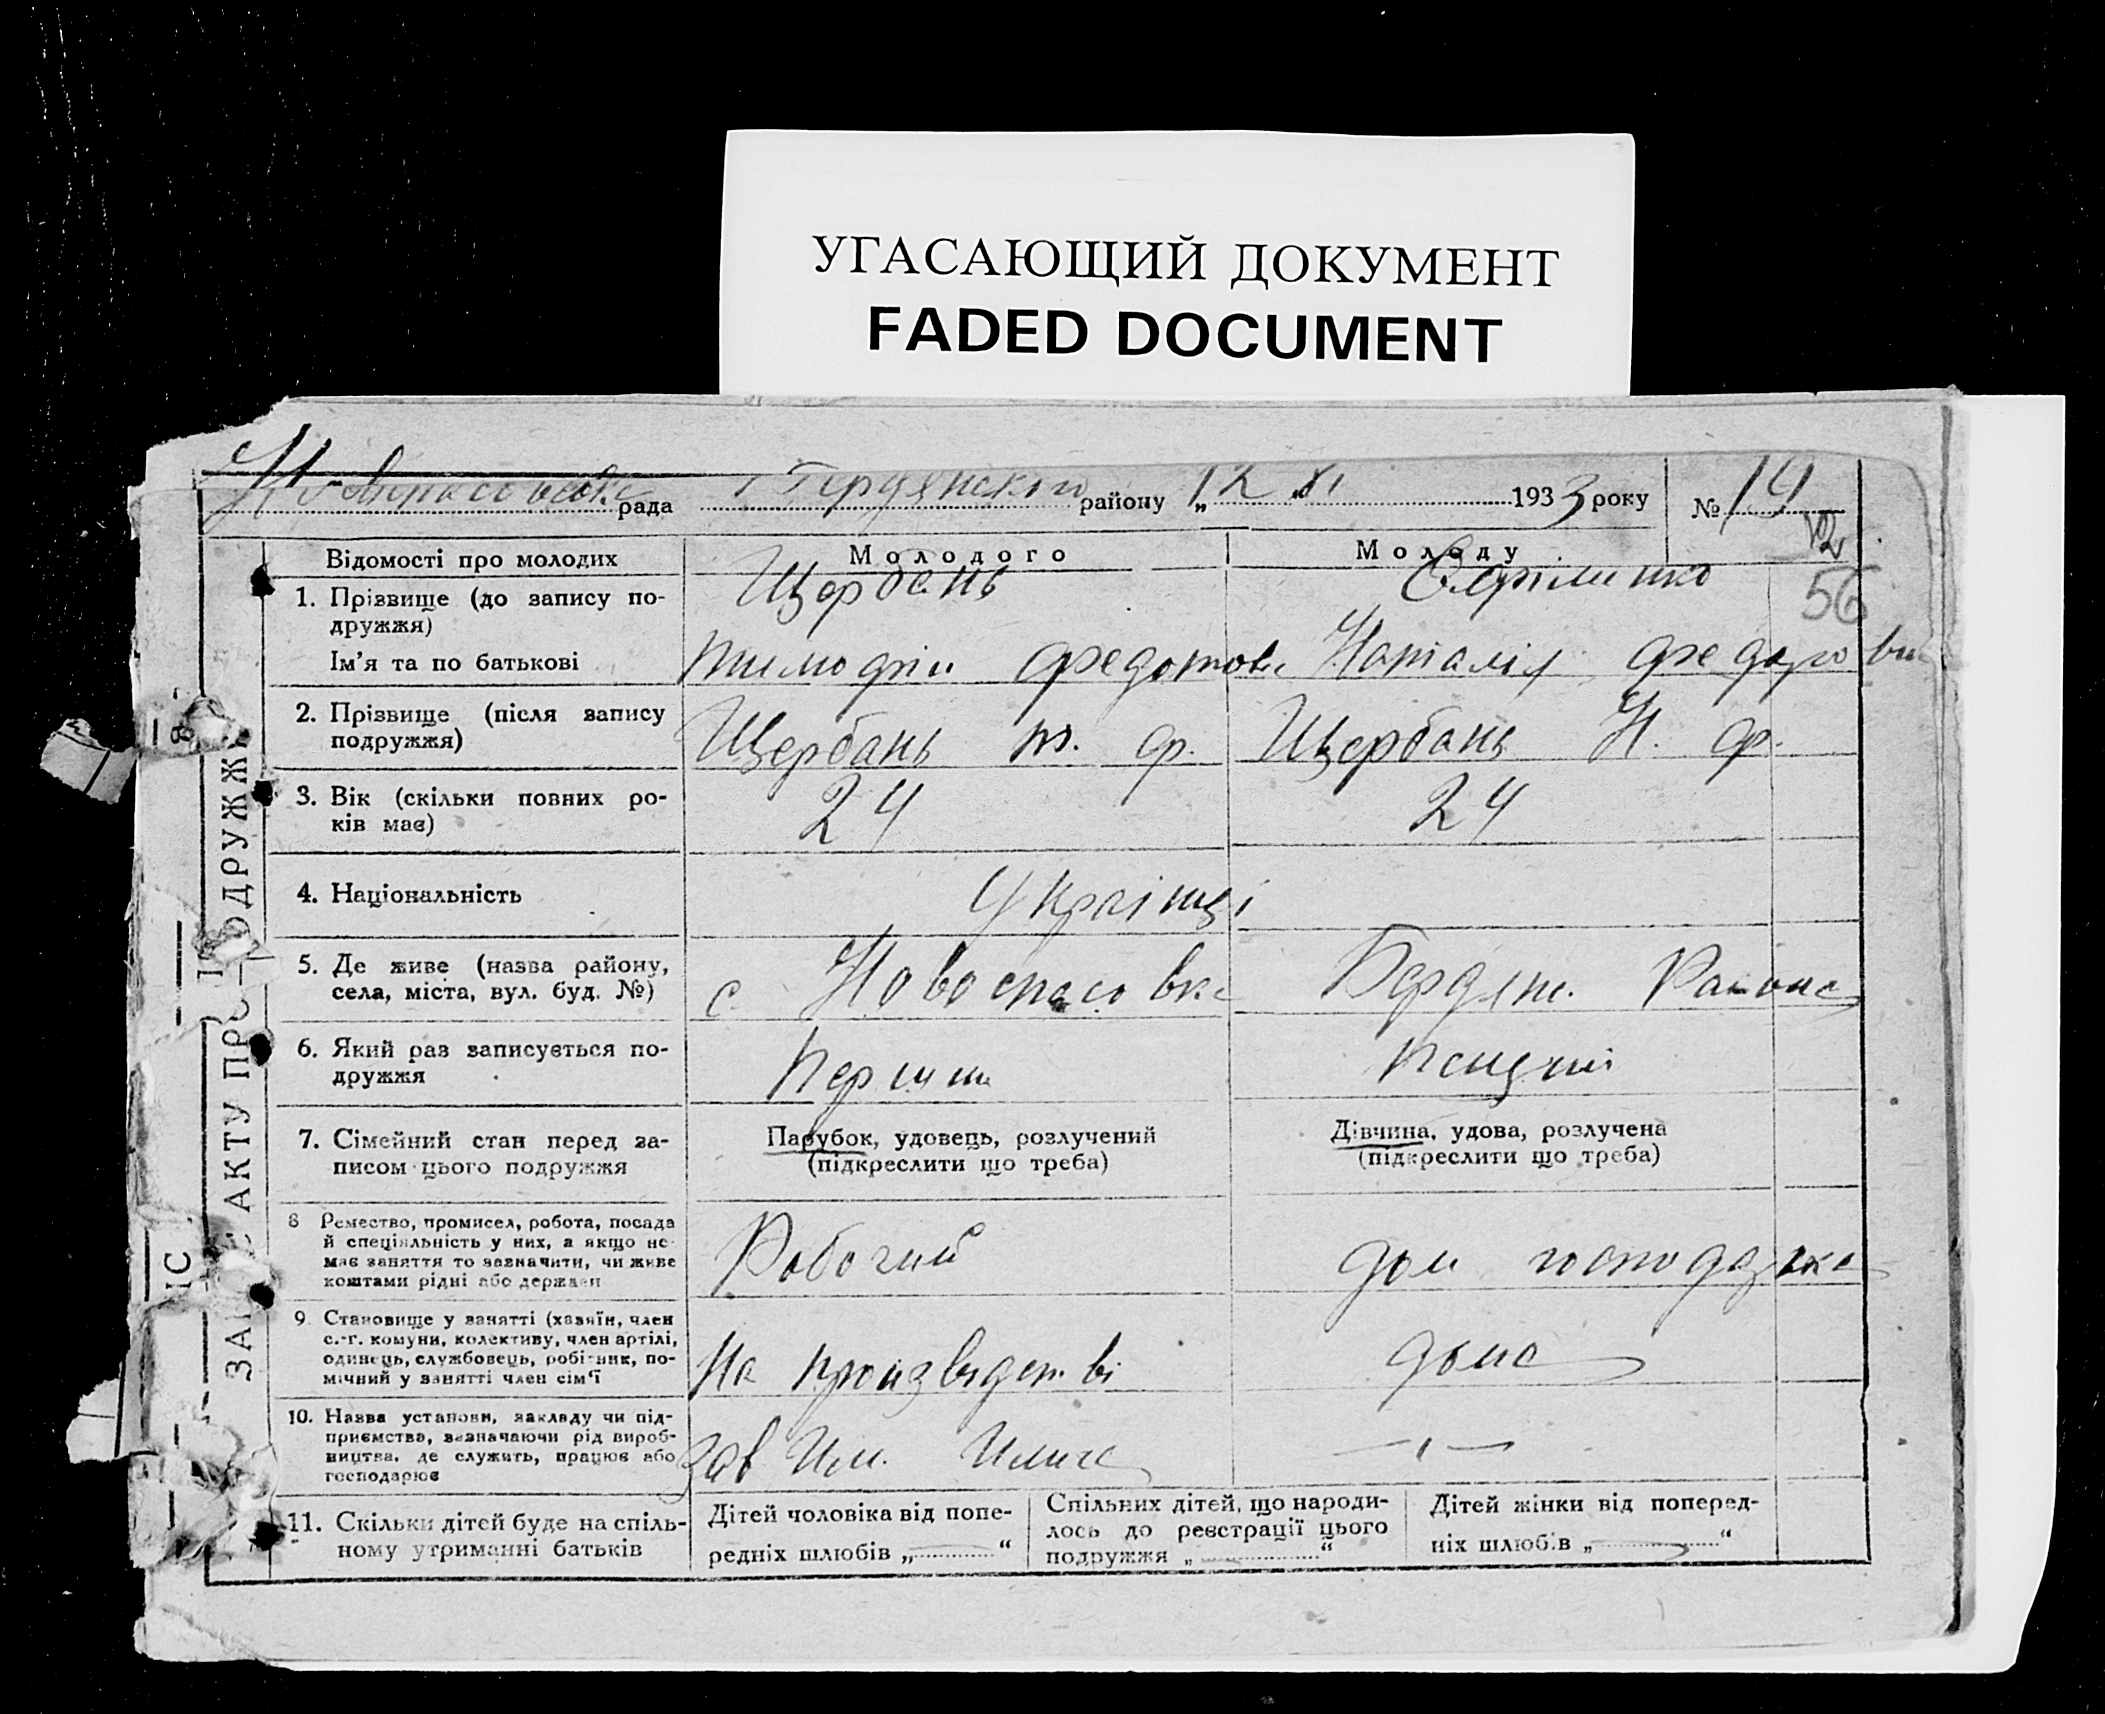 УГАСАЮЩИЙ ДОКУМЕНТ
FADED DOCUMENT
рада Бердянского району „12 XI 1933 року № 19
12
56
ЗАПИС АКТУ ПРО ПОДРУЖЖЯ
Відомості про молодих Молодого Молоду
1. Прізвище (до запису по- Щербань
дружжя)
Ім’я та по батькові Тимофій Федотови Наталія Федоровн
2. Прізвище (після запису Щербань Т. Ф. Щербань Н. Ф.
подружжя)
3. Вік (скільки повних ро- 24 24
ків має)
4. Національність Українці
5. Де живе (назва району, с. Новоспасовка Бердян. Района
села, міста, вул. буд. №)
6. Який раз записується по- Перший
дружжя
7. Сімейний стан перед за- Парубок, удовець, розлучений Дівчина, удова, розлучена
писом цього подружжя (підкреслити що треба) (підкреслити що треба)
8 Ремество, промисел, робота, посада Робочий дом господарка
й спеціяльність у них, а якщо не
має заняття то зазначити, чи живе
коштами рідні або держави
9. Становище у занятті (хазяїн, член На произведстві дома
с.-г. комуни, колективу, член артілі,
одинець, службовець, робітник, по-
мічний у занятті член сім’ї
10. Назва установи, закладу чи під- Зав Им. Илича — ı —
приємства, зазначаючи рід вироб-
ництва, де служить, працює або
господарює
11. Скільки дітей буде на спіль- Дітей чоловіка від попе- Спільних дітей, що народи- Дітей жінки від поперед-
ному утриманні батьків редніх шлюбів „—“ лось до реєстрації цього ніх шлюбів „—“
подружжя „—“